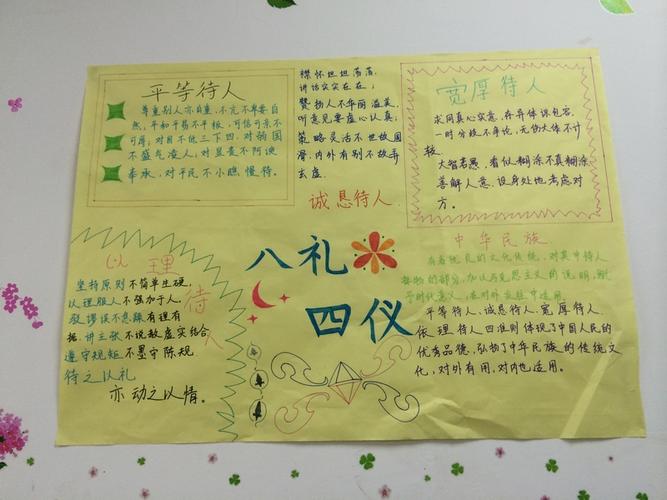 平等待人
尊重别人亦自重,不亢不卑要自
然,平和平易不平粮,可信可亲不
可厚;对目不
不盛气凌人;对显贵不阿谀
奉承,对平民不小瞧慢待。
襟怀坦坦荡荡,
讲话实实在在;
赞扬人不华丽溢美,
听意见要虚心认真;
策略灵活不世故圆
滑,内外有别不故弄
玄虚。
诚恳待人
宽厚待人
求同真心实意,存异体谅包容
一时分歧不争论,无伤大体不计
较。
大智若愚,看似糊涂不真糊涂
善解人意,设身处地考虑对
方。
以理待人
坚持原则不简单生硬,
以理服人不强加于人,
驳谬误不急躁有理有
据,讲主张不说教虚实结合,
遵守规矩不墨守陈规。
待之以礼
亦动之以情。
八礼
四仪
中华民族
有着优良的文化传统,对其中待人
接物的部分,加以马克思主义的说明,赋
予时代意义,在对外交往中适用。
平等待人、诚恳待人、宽厚待人
依理待人四准则体现了中国人民的
优秀品德,弘扬了中华民族的传统文
化,对外有用,对内也适用。